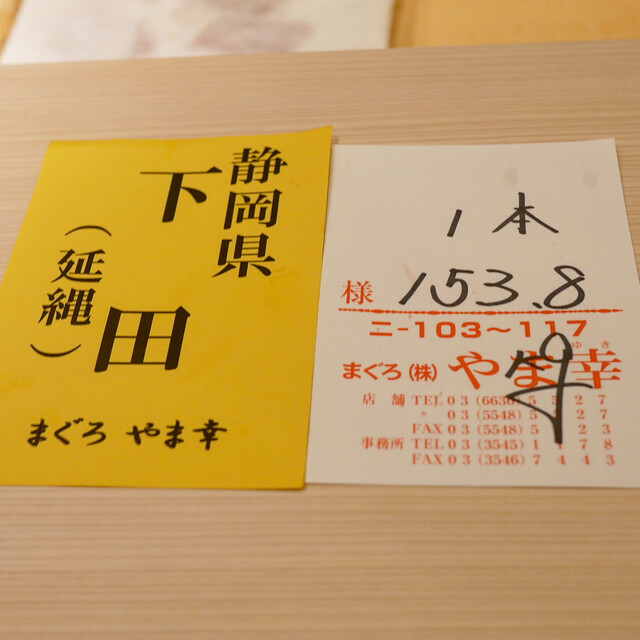 静岡県
下田
（延縄）
まぐろ やま幸
1本
様 153.8
ニ-103〜117
ゆき
まぐろ（株）やま幸
店舗 TEL 03(6636)5527
〃 03(5548)5
FAX 03(5548)5 23
事務所 TEL 03(3545)1178
FAX 03(3546)7443